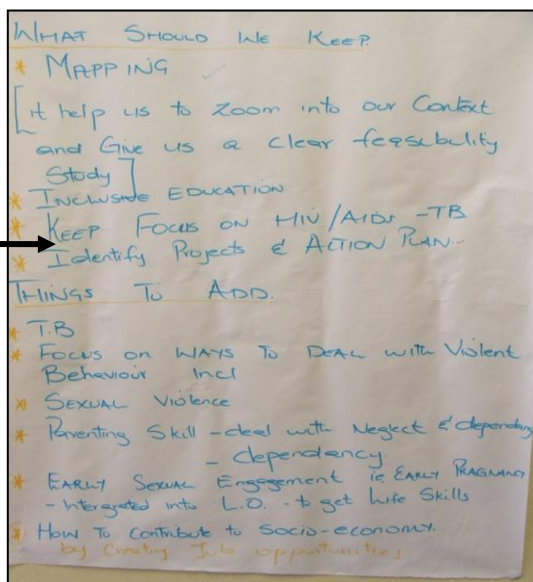 WHAT SHOULD WE KEEP.
* MAPPING
[it help us to Zoom into our Context
and Give us a clear feasubulity
Study]
* INCLUSIVE EDUCATION
* KEEP FOCUS ON HIV/AIDS -TB
* Identify Projects & ACTION PLAN.
THINGS TO ADD.
* T.B
* FOCUS ON WAYS TO DEAL with Violent
Behaviour Incl
* SEXUAL Violence
* Parenting Skill - deal with Neglect &
- dependancy.
* EARLY SEXUAL Engagement ie EARLY PRAGNANCY
- Intergrated into L.O. - to get Life Skills
* How To Contribute to Socio-economy.
by Creating Job oppurtunities